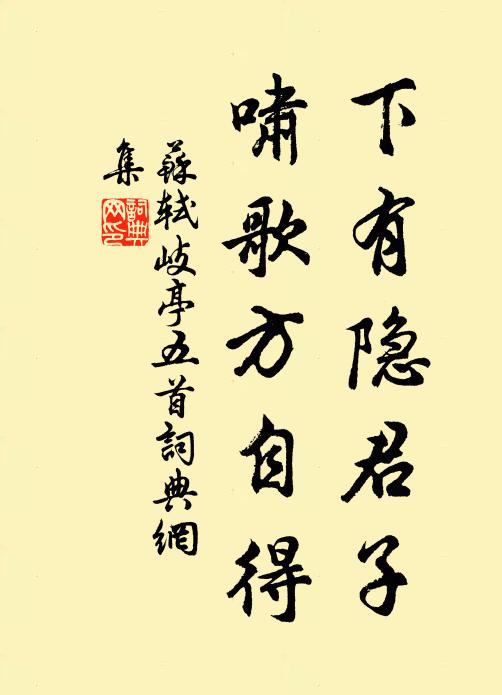 下有隐君子
啸歌方自得
蘇軾歧亭五首詞典網
集
詞典
网印